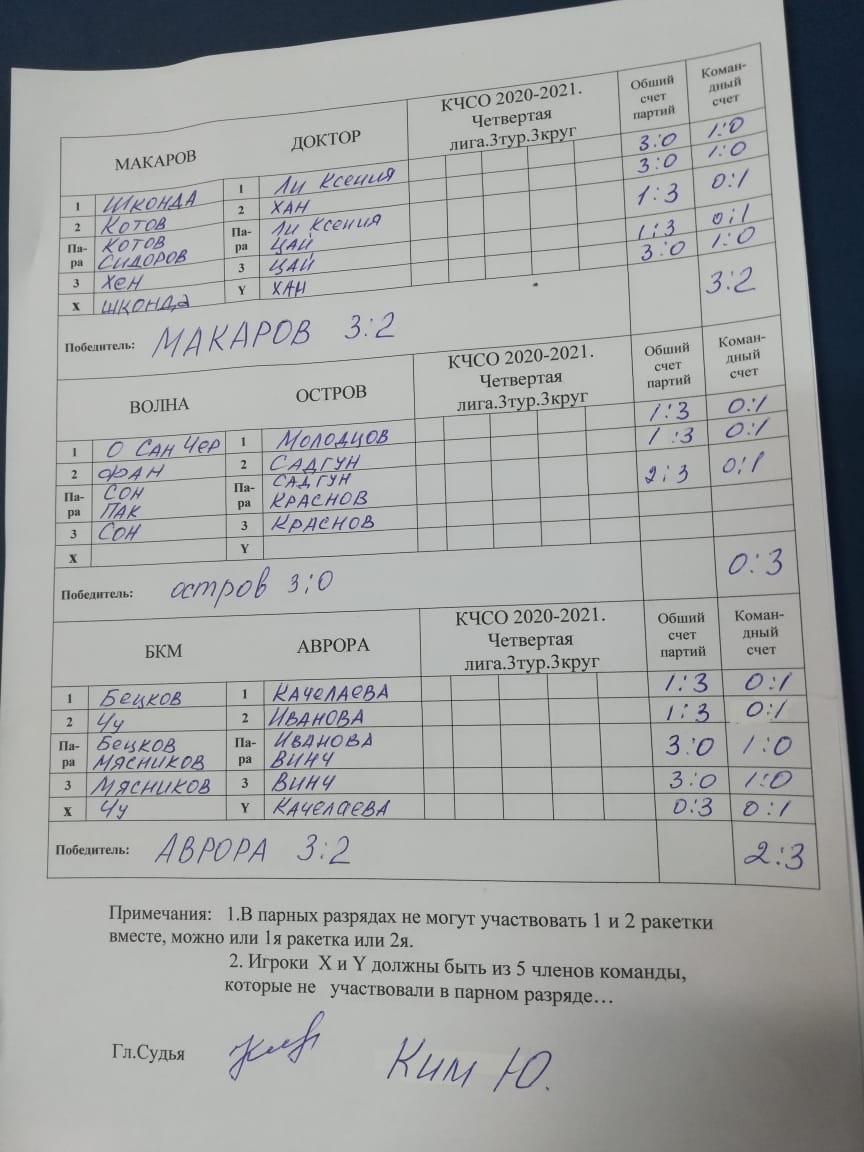 МАКАРОВ ДОКТОР КЧСО 2020-2021. Четвертая лига.3тур.3круг Обший счет партий Коман-дный счет
1 ШКОНДА 1 Ли Ксения 3:0 1:0
2 КОТОВ 2 ХАН 3:0 1:0
Па-ра КОТОВ СИДОРОВ Па-ра Ли Ксения ЦАЙ 1:3 0:1
3 ХЕН 3 ЦАЙ 1:3 0:1
Х ШКОНДА Y ХАН 3:0 1:0
3:2
Победитель: МАКАРОВ 3:2
ВОЛНА ОСТРОВ КЧСО 2020-2021. Четвертая лига.3тур.3круг Обший счет партий Коман-дный счет
1 О САН ЧЕР 1 МОЛОДЦОВ 1:3 0:1
2 ФАН 2 САДГУН 1:3 0:1
Па-ра СОН ПАК Па-ра САДГУН КРАСНОВ 2:3 0:1
3 СОН 3 КРАСНОВ
Х Y
0:3
Победитель: остров 3:0
БКМ АВРОРА КЧСО 2020-2021. Четвертая лига.3тур.3круг Обший счет партий Коман-дный счет
1 БЕЦКОВ 1 КАЧЕЛАЕВА 1:3 0:1
2 Чу 2 ИВАНОВА 1:3 0:1
Па-ра БЕЦКОВ МЯСНИКОВ Па-ра ИВАНОВА ВИНЧ 3:0 1:0
3 МЯСНИКОВ 3 ВИНЧ 3:0 1:0
Х Чу Y КАЧЕЛАЕВА 0:3 0:1
2:3
Победитель: АВРОРА 3:2
Примечания: 1.В парных разрядах не могут участвовать 1 и 2 ракетки
вместе, можно или 1я ракетка или 2я.
2. Игроки Х и Y должны быть из 5 членов команды,
которые не участвовали в парном разряде…
Гл.Судья Ким Ю.